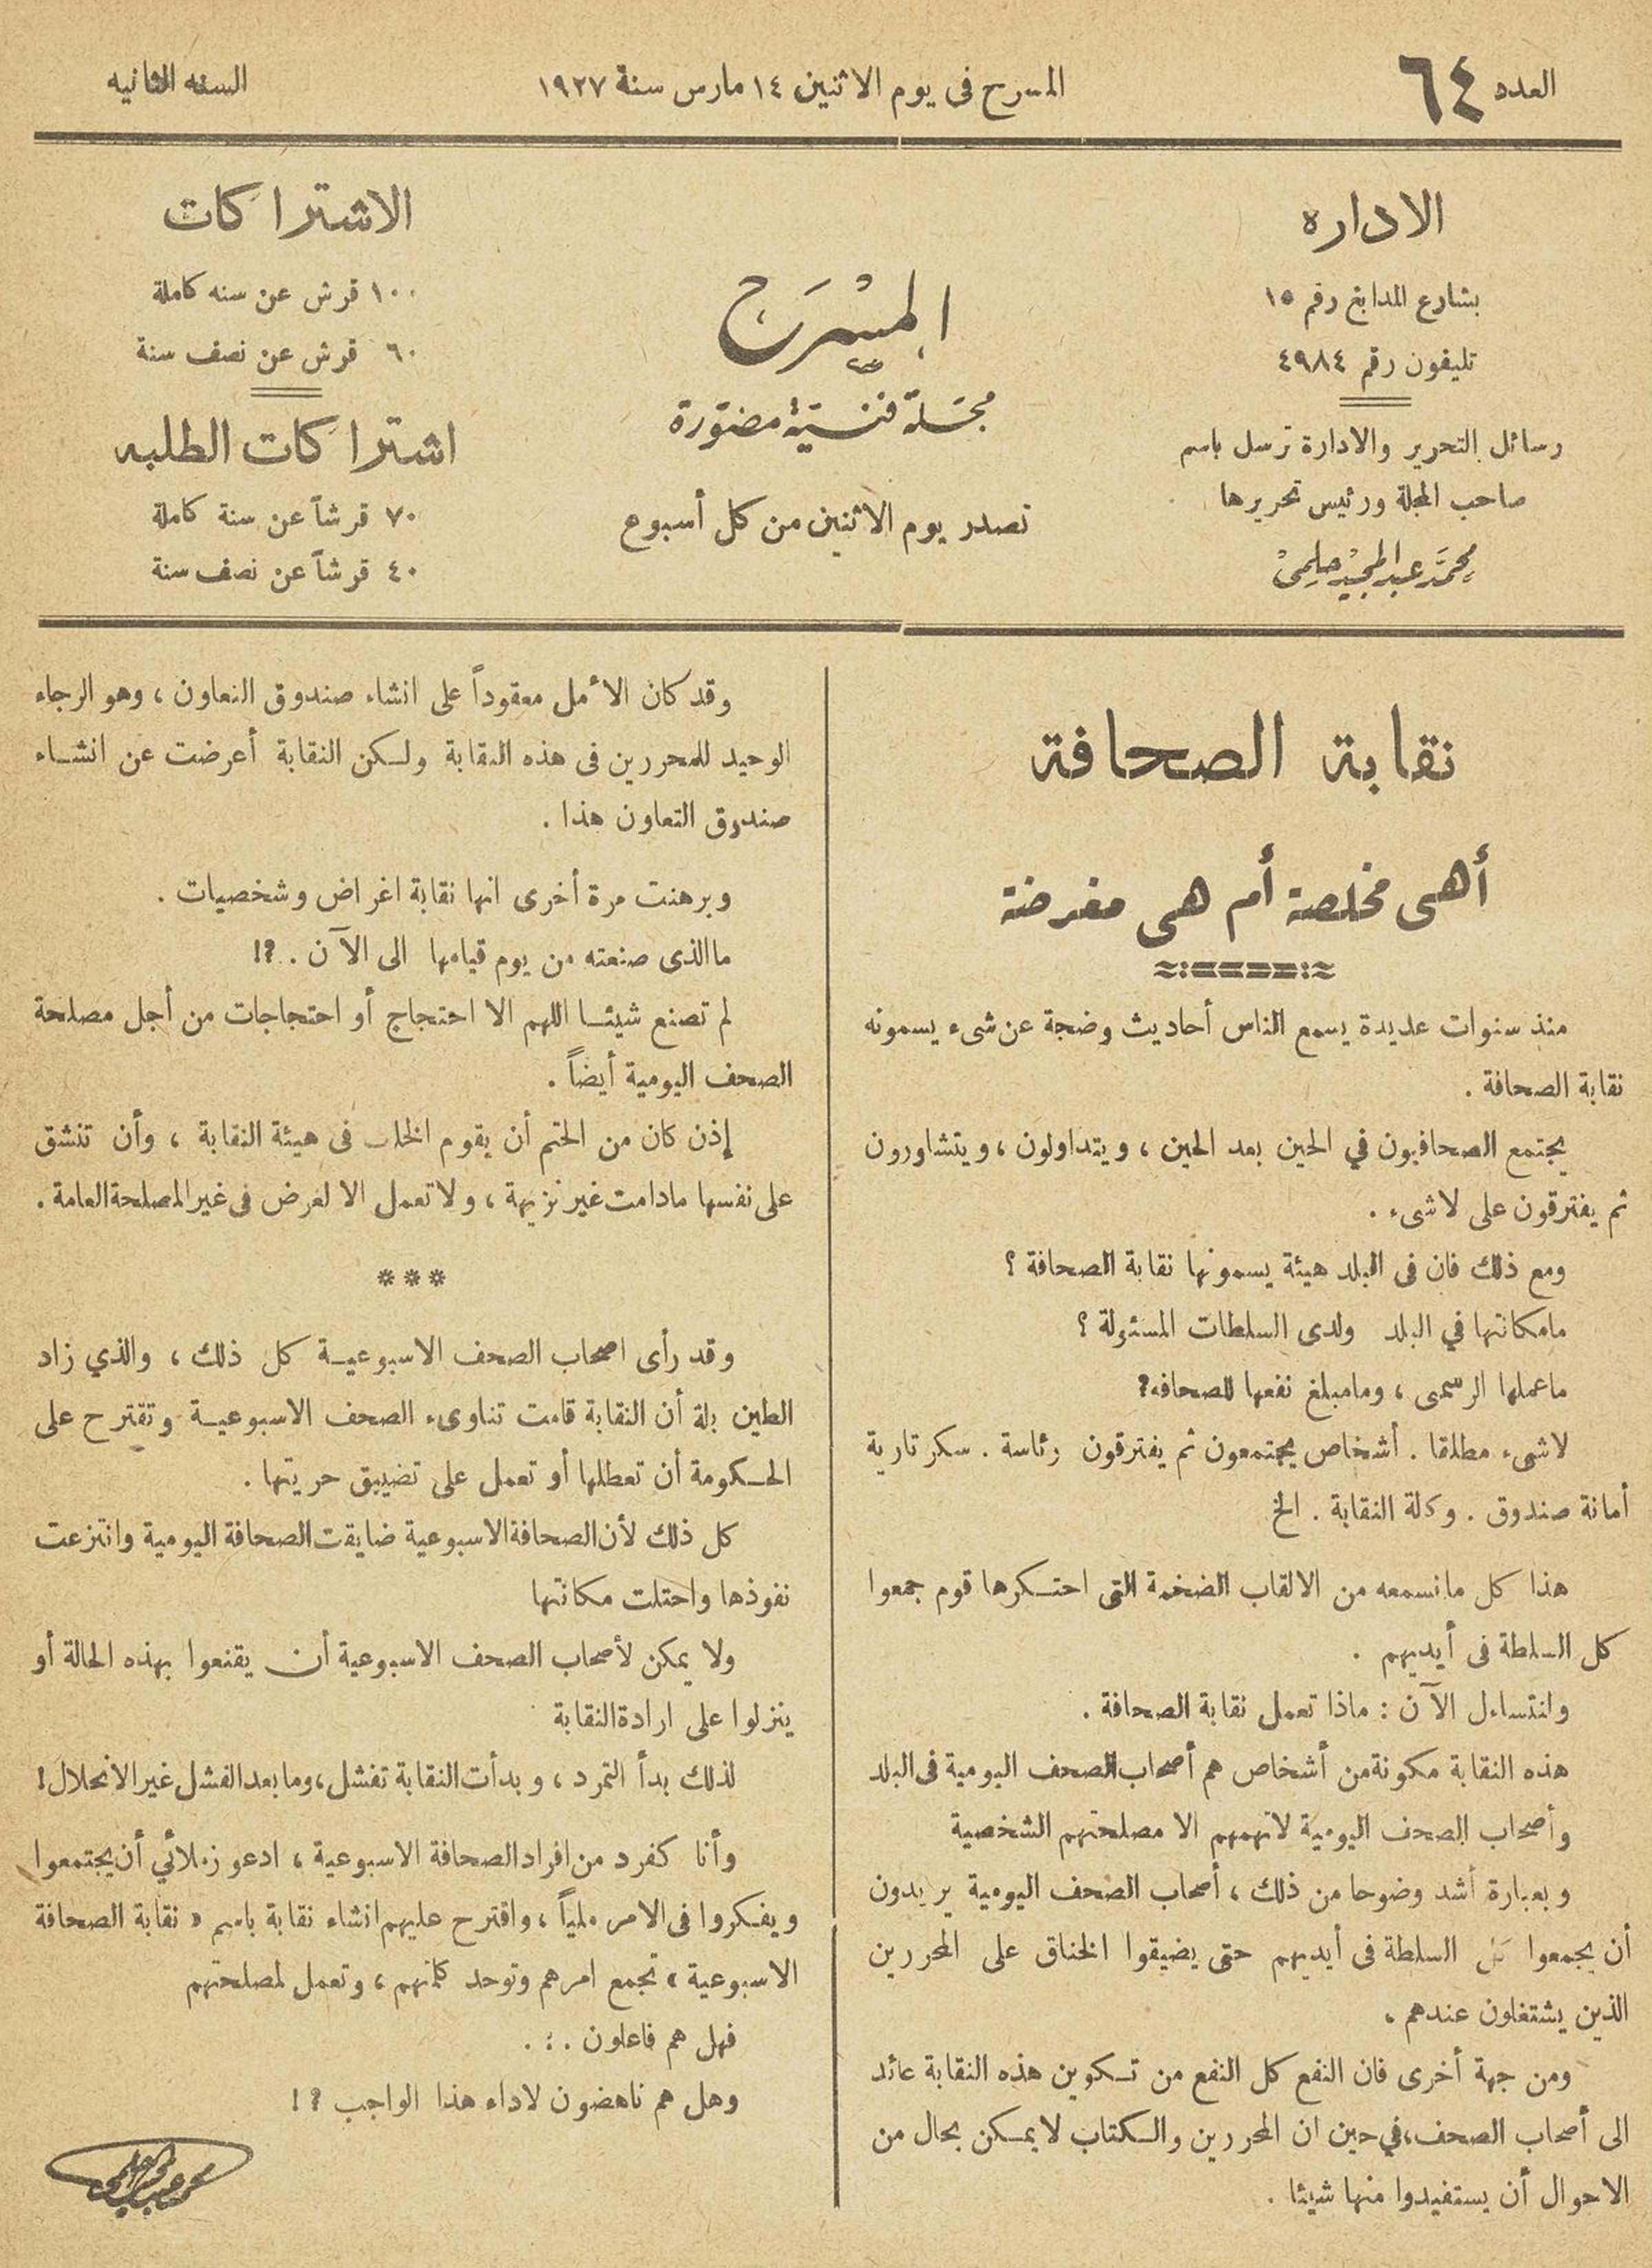 العدد ٦٤
المسرح فى يوم الاثنين ١٤ مارس سنة ١٩٢٧
السنه الثانيه
الاداره
بشارع المدابغ رقم ١٥
تليفون رقم ٤٩٨٤
رسائل التحرير والادارة ترسل باسم
صاحب المجلة ورئيس تحريرها
محمد عبد المجيد حلمى
المسرح
مجلة فنية مصورة
تصدر يوم الاثنين من كل أسبوع
الاشتراكات
١٠٠ قرش عن سنه كاملة
٦٠ قرش عن نصف سنة
اشتراكات الطلبه
٧٠ قرشاً عن سنة كاملة
٤٠ قرشاً عن نصف سنة
نقابة الصحافة
أهى مخلصة أم هى مغرضة
منذ سنوات عديدة يسمع الناس أحاديث وضجة عن شىء يسمونه
نقابة الصحافة .
يجتمع الصحافيون في الحين بعد الحين ، ويتداولون ، ويتشاورون
ثم يفترقون على لاشىء .
ومع ذلك فان فى البلد هيئة يسمونها نقابة الصحافة ؟
مامكانتها في البلد ولدى السلطات المسئولة ؟
ماعملها الرسمى ، ومامبلغ نفعها للصحافه؟
لاشىء مطلقا . أشخاص يجتمعون ثم يفترقون رئاسة . سكرتارية
أمانة صندوق . وكلة النقابة . الخ
هذا كل مانسمعه من الالقاب الضخمة التى احتكرها قوم جمعوا
كل السلطة فى أيديهم .
ولنتساءل الآن : ماذا تعمل نقابة الصحافة .
هذه النقابة مكونة من أشخاص هم أصحاب الصحف اليومية فى البلد
وأصحاب الصحف اليومية لاتهمهم الا مصلحتهم الشخصية
وبعبارة أشد وضوحا من ذلك ، أصحاب الصحف اليومية يريدون
أن يجمعوا كل السلطة فى أيديهم حتى يضيقوا الخناق على المحررين
الذين يشتغلون عندهم ،
ومن جهة أخرى فان النفع كل النفع من تكوين هذه النقابة عائد
الى أصحاب الصحف، في حين ان المحررين والكتاب لايمكن بحال من
الاحوال أن يستفيدوا منها شيئا .
وقد كان الأمل معقوداً على انشاء صندوق التعاون ، وهو الرجاء
الوحيد للمحررين فى هذه النقابة ولكن النقابة أعرضت عن انشاء
صندوق التعاون هذا .
وبرهنت مرة أخرى انها نقابة اغراض وشخصيات .
ماالذى صنعته من يوم قيامها الى الآن . . ؟!
لم تصنع شيئا اللهم الا احتجاج أو احتجاجات من أجل مصلحة
الصحف اليومية أيضاً .
إذن كان من الحتم أن يقوم الخلاف فى هيئة النقابة ، وأن تنشق
على نفسها مادامت غير نزيهة ، ولا تعمل الا لغرض فى غير المصلحة العامة .
***
وقد رأى اصحاب الصحف الاسبوعية كل ذلك ، والذي زاد
الطين بلة أن النقابة قامت تناوىء الصحف الاسبوعية وتقترح على
الحكومة أن تعطلها أو تعمل على تضييق حريتها .
كل ذلك لأن الصحافة الاسبوعية ضايقت الصحافة اليومية وانتزعت
نفوذها واحتلت مكانتها
ولا يمكن لأصحاب الصحف الاسبوعية أن يقنعوا بهذه الحالة أو
ينزلوا على ارادة النقابة
لذلك بدأ التمرد ، وبدأت النقابة تفشل ، وما بعد الفشل غير الانحلال!
وأنا كفرد من افراد الصحافة الاسبوعية ، ادعو زملائي أن يجتمعوا
ويفكروا فى الامر ملياً ، واقترح عليهم انشاء نقابة باسم « نقابة الصحافة
الاسبوعية » تجمع امرهم وتوحد كلمتهم ، وتعمل لمصلحتهم
فهل هم فاعلون . : .
وهل هم ناهضون لاداء هذا الواجب ؟ !
محمد عبد المجيد حلمى